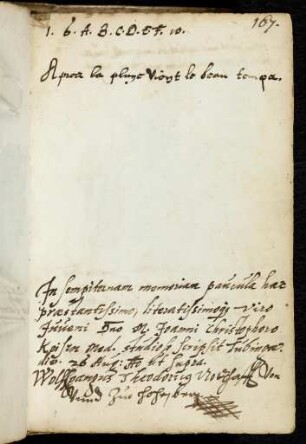 167.
1. 6. A. B. C. D. E. F. 10.
Apres la pluye vient le beau temps.
In sempiternam memoriam paucula haec
præstantissimo, literatissimoq; Viro
Juveni Dno M. Joanni Christophoro
Med. Studioso scripsit Tubingae
die 26 Aug: Ao ut supra.
Wolf Theodoricus Von
Und Zu